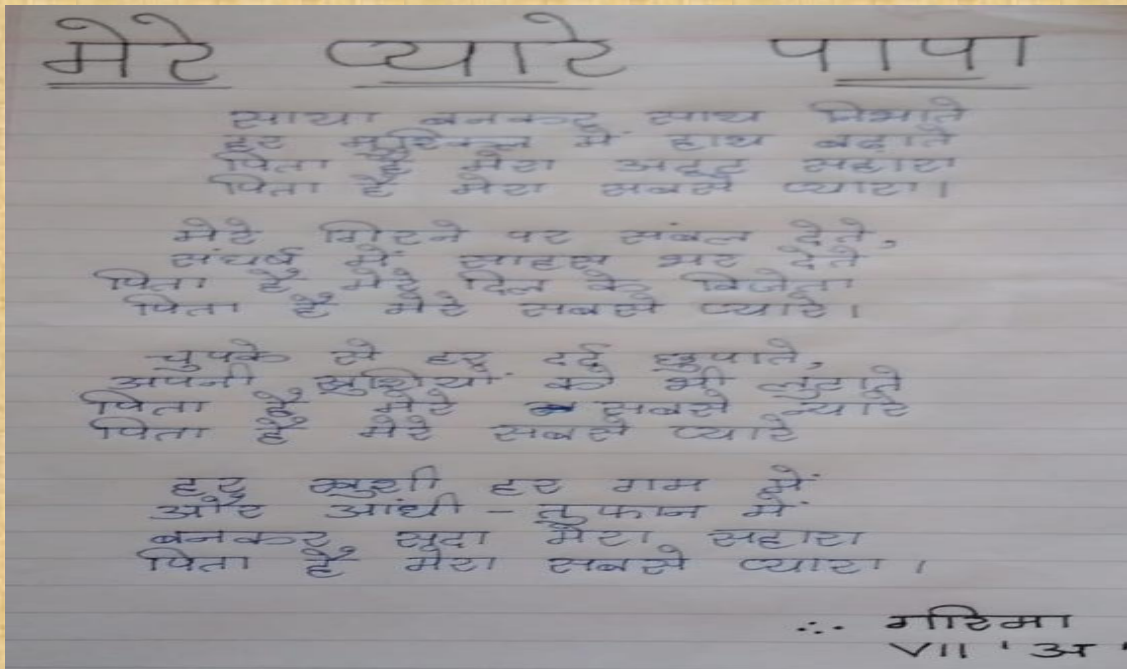 मेरे प्यारे पापा
साया बनकर साथ निभाते
हर मुश्किल में हाथ बढ़ाते
पिता है मेरा अटूट सहारा
पिता है मेरा सबसे प्यारा।
मेरे गिरने पर संबल देते,
संघर्ष में साहस भर देते
पिता है मेरे दिल के विजेता
पिता है मेरे सबसे प्यारे।
चुपके से हर दर्द छुपाते,
अपनी खुशियों को भी लुटाते
पिता है मेरे सबसे न्यारे
पिता है मेरे सबसे प्यारे
हर खुशी हर गम में
और आंधी - तुफान में
बनकर सदा मेरा सहारा
पिता है मेरा सबसे प्यारा।
∴ गरिमा
VII 'अ'